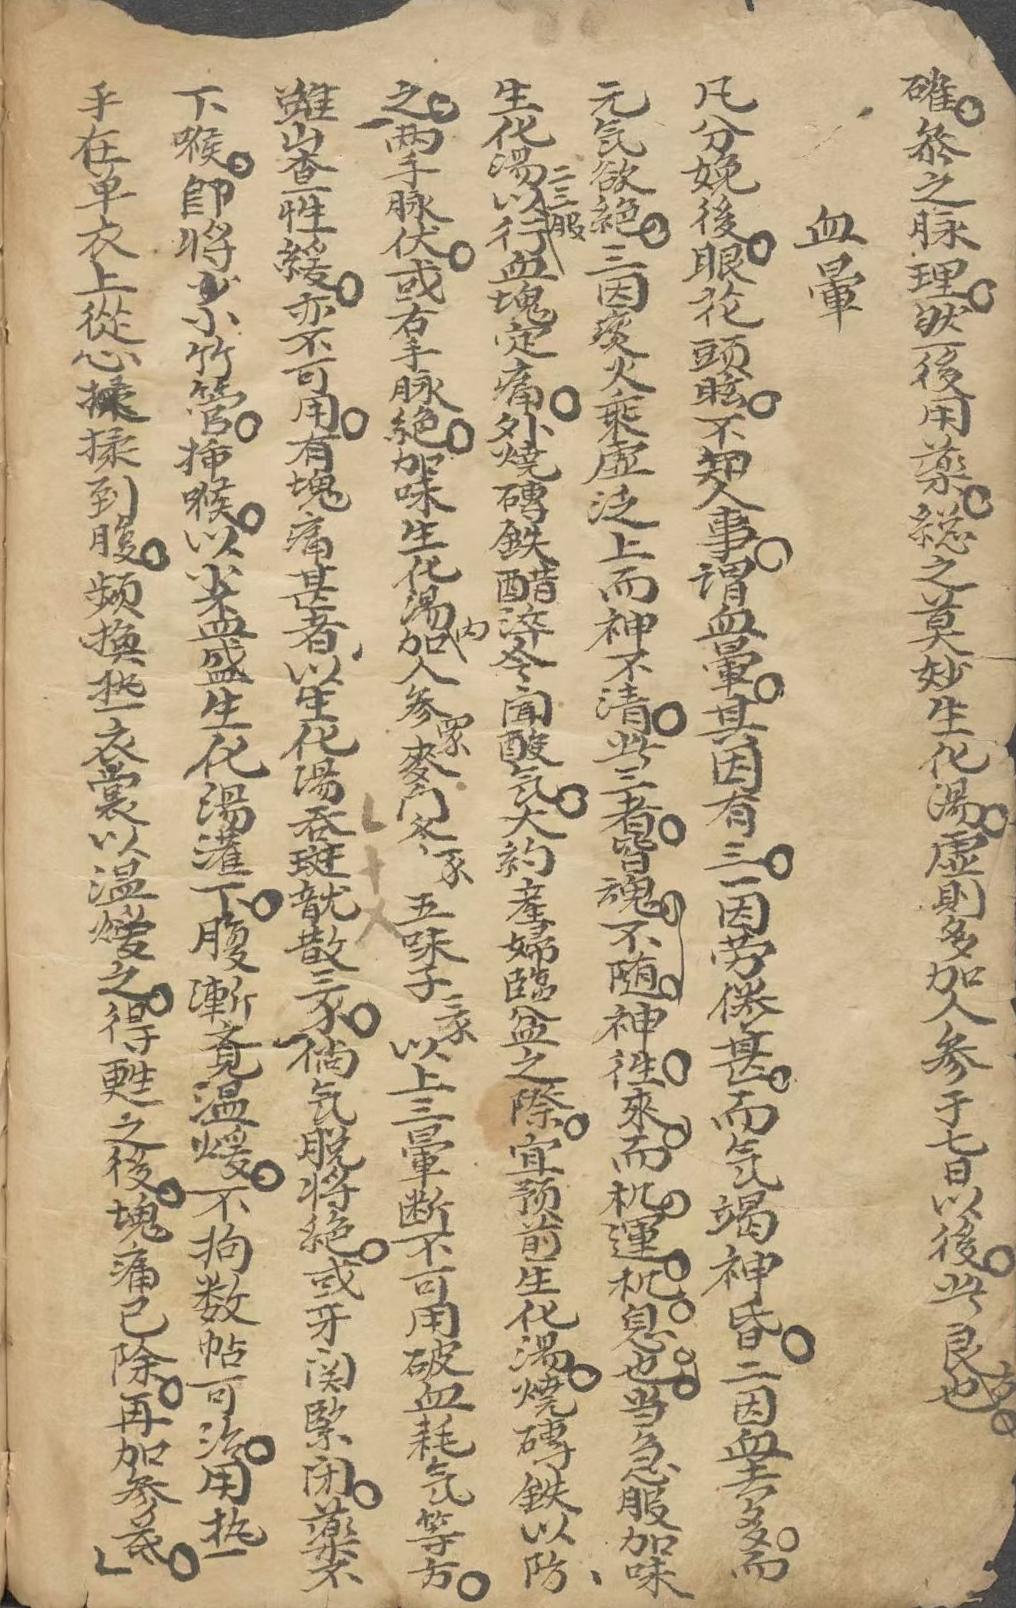 確叅之脉理然後用藥総之莫妙生化湯虚則多加人参于七日以後此良方也
血暈
凡分娩後眼花頭眩不知人事謂血暈其因有三一因劳倦甚而气竭神昏二因血去多而
元气欲絶三因痰火乘虚泛上而神不清此三者皆魂不随神往來而机運机息也当急服加味
生化湯二三服以行血塊定痛外燒磚鉄醋淬令聞酸气大約產婦臨盆之際宜预前生化湯燒磚鉄以防
之两手脉伏或右手脉絶加味生化湯内加人参麥門冬五味子以上三暈断不可用破血耗气等方
雖山查性緩亦不可用有塊痛甚者以生化湯吞斑龍散三倘气脱将絶或牙関緊闭藥不
下喉即将小竹管揷喉以半盛生化湯灌下腹漸覔温煖不拘数帖可治用热
手在单衣上從心揉揉到腹频換热衣裳以温煖之得甦之後塊痛已除再加参芪